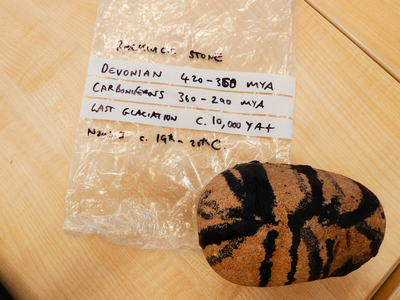 STONE
DEVONIAN 420-350 MYA
CARBONIFEROUS 360-290 MYA
LAST GLACIATION C. 10,000 YA+
c. 19th - 20th C.